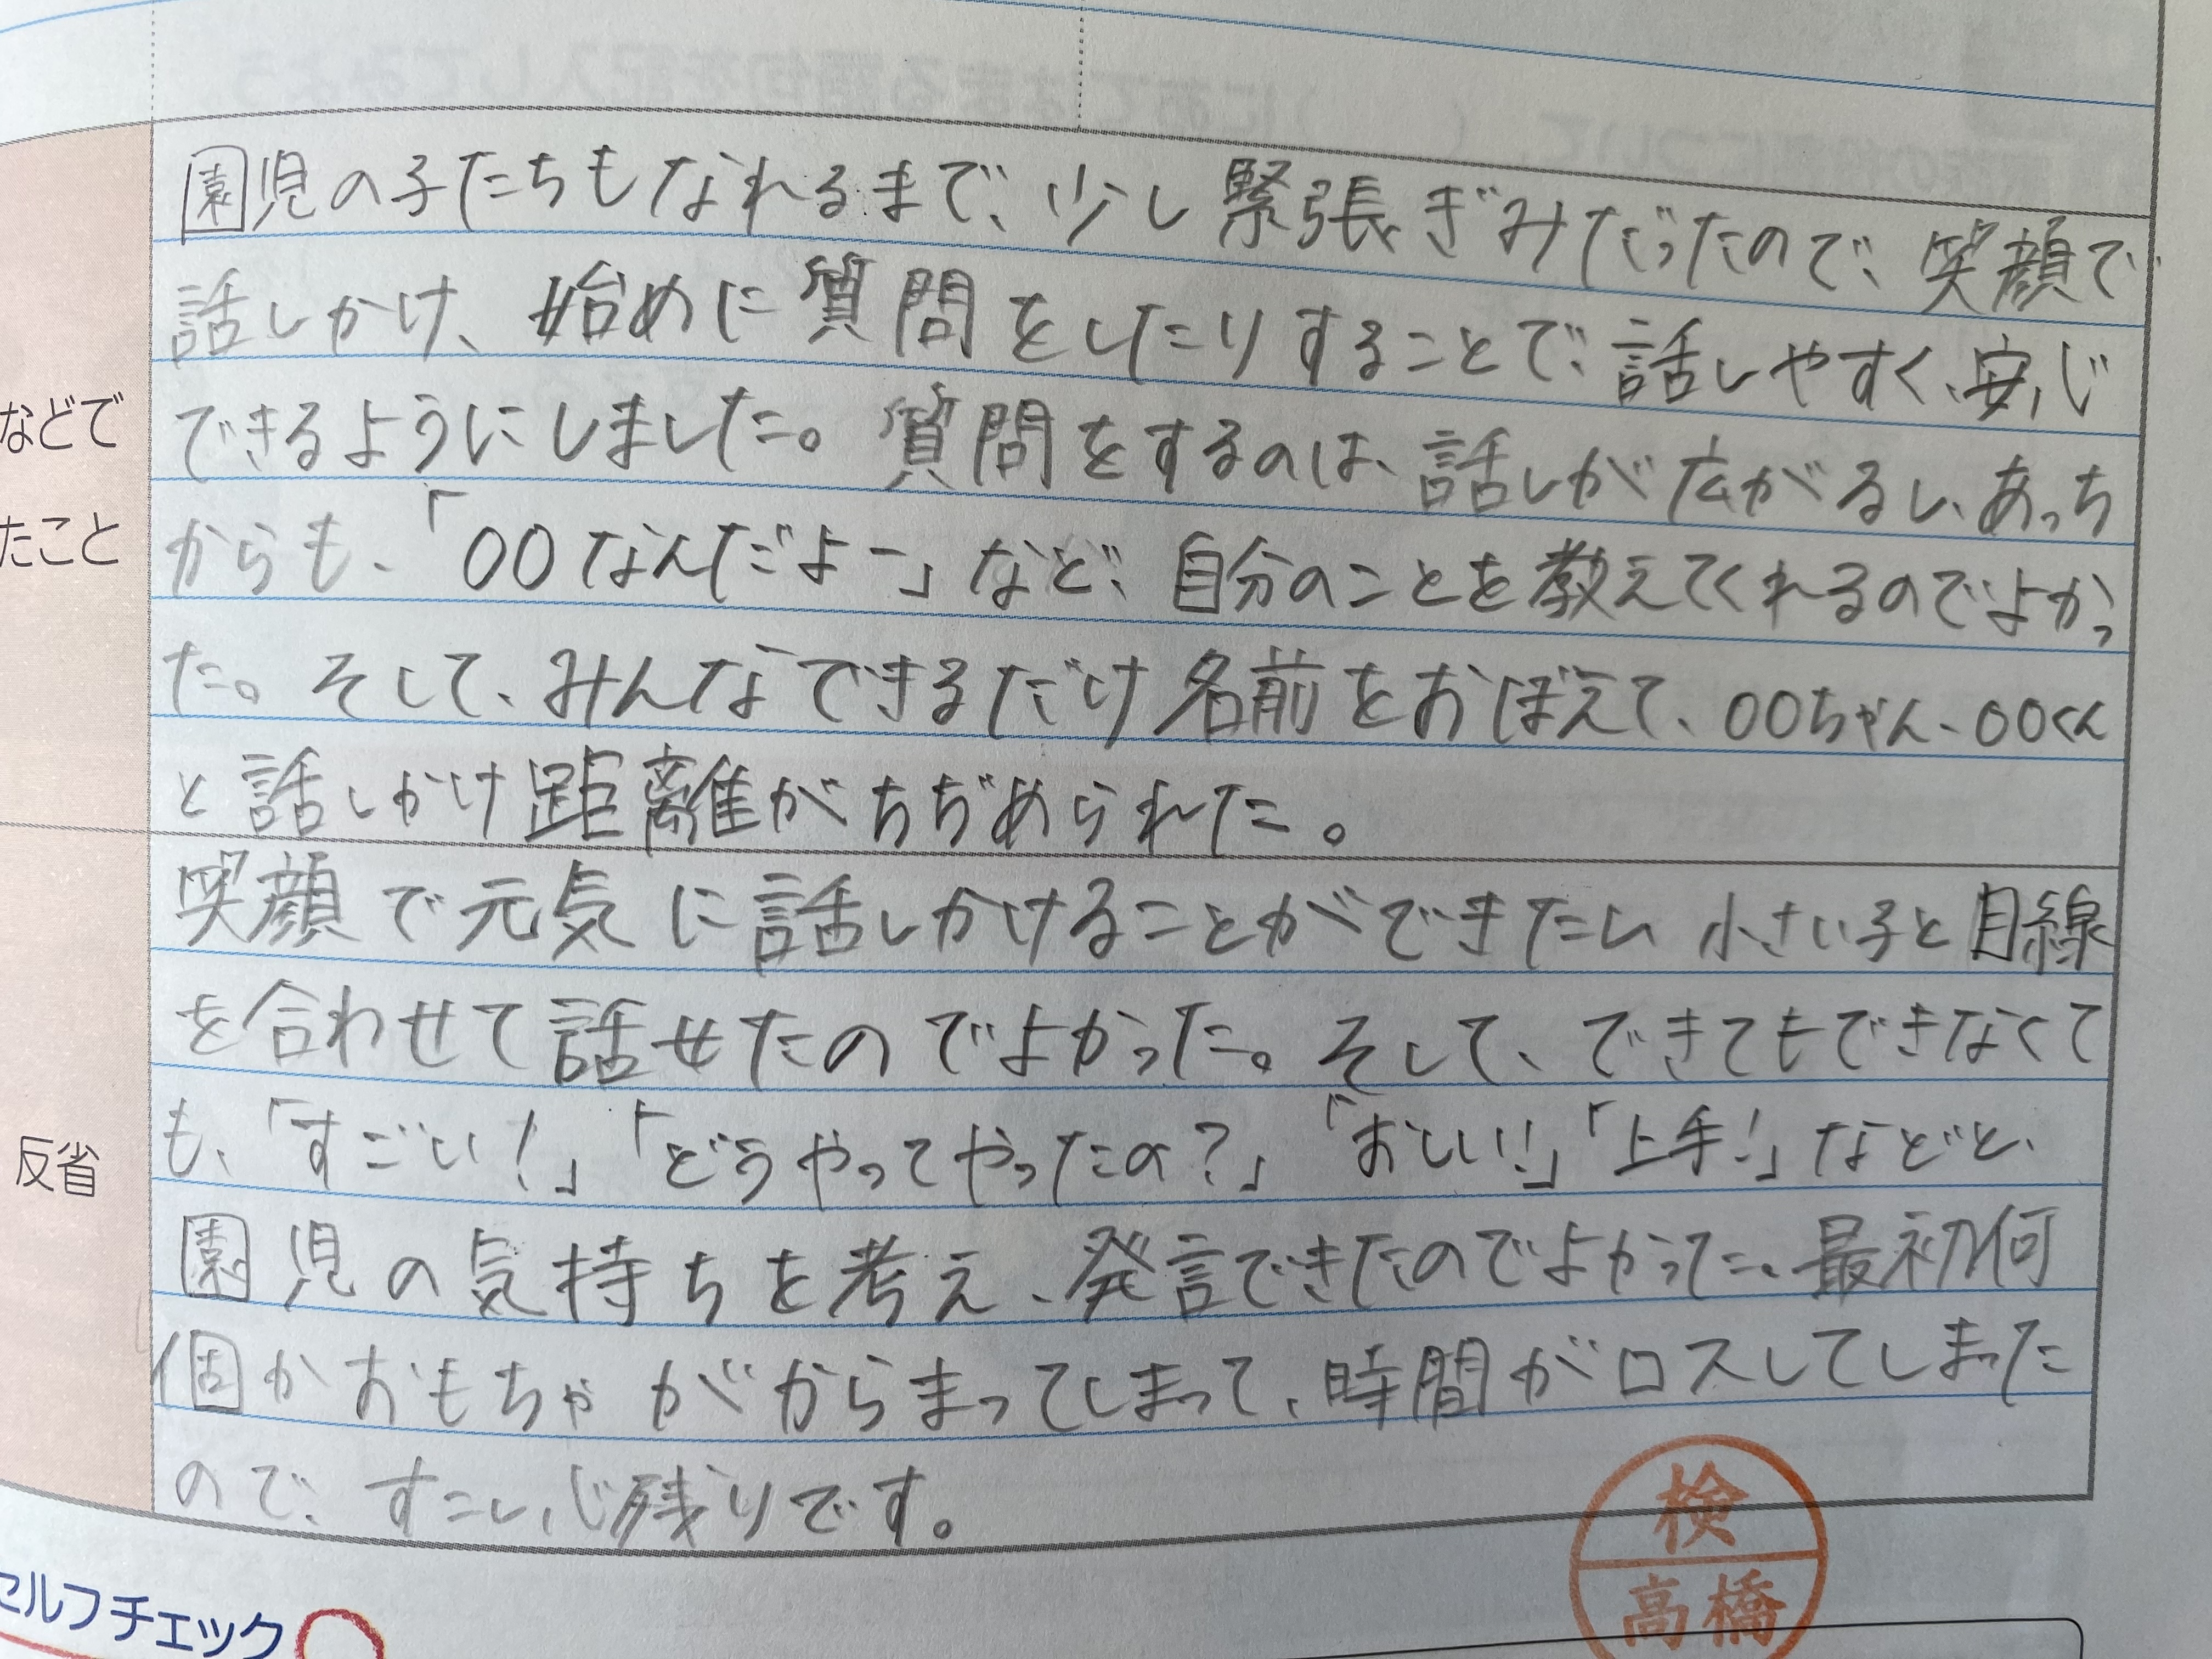 園児の子たちもなれるまで、少し緊張ぎみだったので、笑顔で
話しかけ、始めに質問をしたりすることで、話しやすく、安心
できるようにしました。質問をするのは、話しが広がるし、あっち
などで
からも、「〇〇なんだよー」など、自分のことを教えてくれるのでよかっ
たこと
た。そして、みんなできるだけ名前をおぼえて、〇〇ちゃん、〇〇くん
と話しかけ距離がちぢめられた。
笑顔で元気に話しかけることができたし、小さい子と目線
を合わせて話せたのでよかった。そして、できてもできなくて
も、「すごい!」「どうやってやったの?」「おしい!」「上手!」などと、
反省
園児の気持ちを考え、発言できたのでよかった。最初何
個かおもちゃがからまってしまって、時間がロスしてしまった
ので、すこし心残りです。
検
高橋
セルフチェック